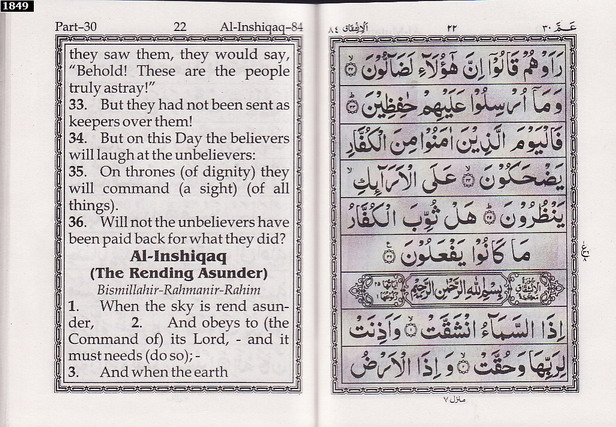 1849
Part-30 22 Al-Inshiqaq-84
they saw them, they would say,
"Behold! These are the people
truly astray!"
33. But they had not been sent as
keepers over them!
34. But on this Day the believers
will laugh at the unbelievers:
35. On thrones (of dignity) they
will command (a sight) (of all
things).
36. Will not the unbelievers have
been paid back for what they did?
Al-Inshiqaq
(The Rending Asunder)
Bismillahir-Rahmanir-Rahim
1. When the sky is rend asun-
der, 2. And obeys to (the
Command of) its Lord, - and it
must needs (do so); -
3. And when the earth
عَمَّ ٣٠ ٢٢ الانشقاق ٨٤
رَاَوْهُمْ قَالُوْٓا اِنَّ هٰٓؤُلَآءِ لَضَآلُّوْنَ ﴿٣٢﴾
وَمَآ اُرْسِلُوْا عَلَيْهِمْ حٰفِظِيْنَ ﴿٣٣﴾
فَالْيَوْمَ الَّذِيْنَ اٰمَنُوْا مِنَ الْكُفَّارِ
يَضْحَكُوْنَ ﴿٣٤﴾ عَلَى الْاَرَآئِكِ
يَنْظُرُوْنَ ﴿٣٥﴾ هَلْ ثُوِّبَ الْكُفَّارُ
مَا كَانُوْا يَفْعَلُوْنَ ﴿٣٦﴾
بِسْمِ اللّٰهِ الرَّحْمٰنِ الرَّحِيْمِ
اِذَا السَّمَآءُ انْشَقَّتْ ﴿١﴾ وَاَذِنَتْ
لِرَبِّهَا وَحُقَّتْ ﴿٢﴾ وَاِذَا الْاَرْضُ
منزل ٧